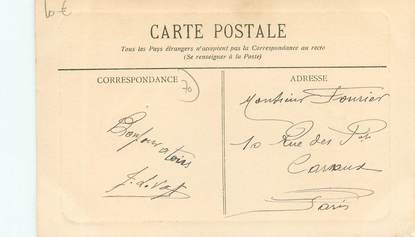 10 €
CARTE POSTALE
Tous les Pays étrangers n'acceptent pas la Correspondance au recto
(Se renseigner à la Poste)
CORRESPONDANCE
70
Bonjour
à tous
ADRESSE
Monsieur Fournier
10 Rue des
Paris